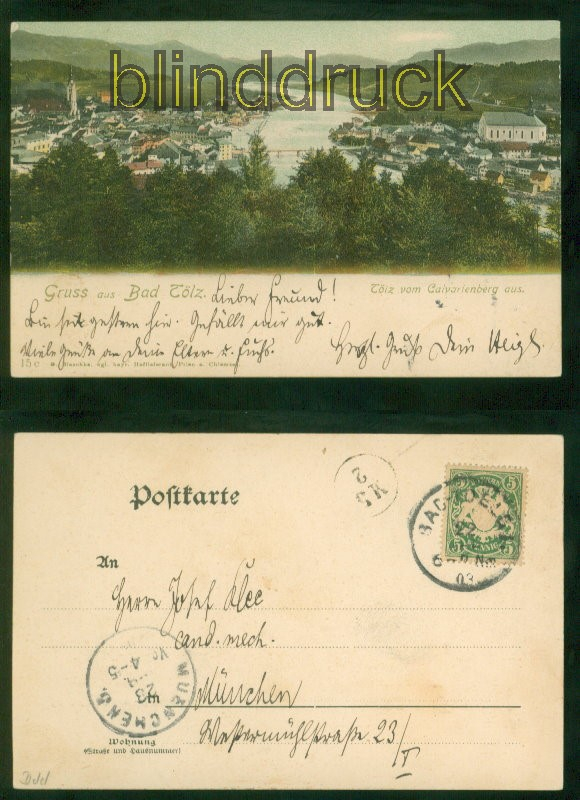 blinddruck
Gruss aus Bad Tölz. Lieber Freund! Tölz vom Calvarienberg aus.
Bin seit gestern hier. Gefällt mir gut.
Viele Grüße an deine Eltern u. Fuchs. Herzl. Gruß Dein Heigl.
15 c
Postkarte
K5
2
BAD TÖLZ
03
5
5
PFENNIG
An
Herrn Josef Klee
cand. mech.
in München
MUENCHEN
Westermühlstraße 23/I
Wohnung
(Straße und Hausnummer)